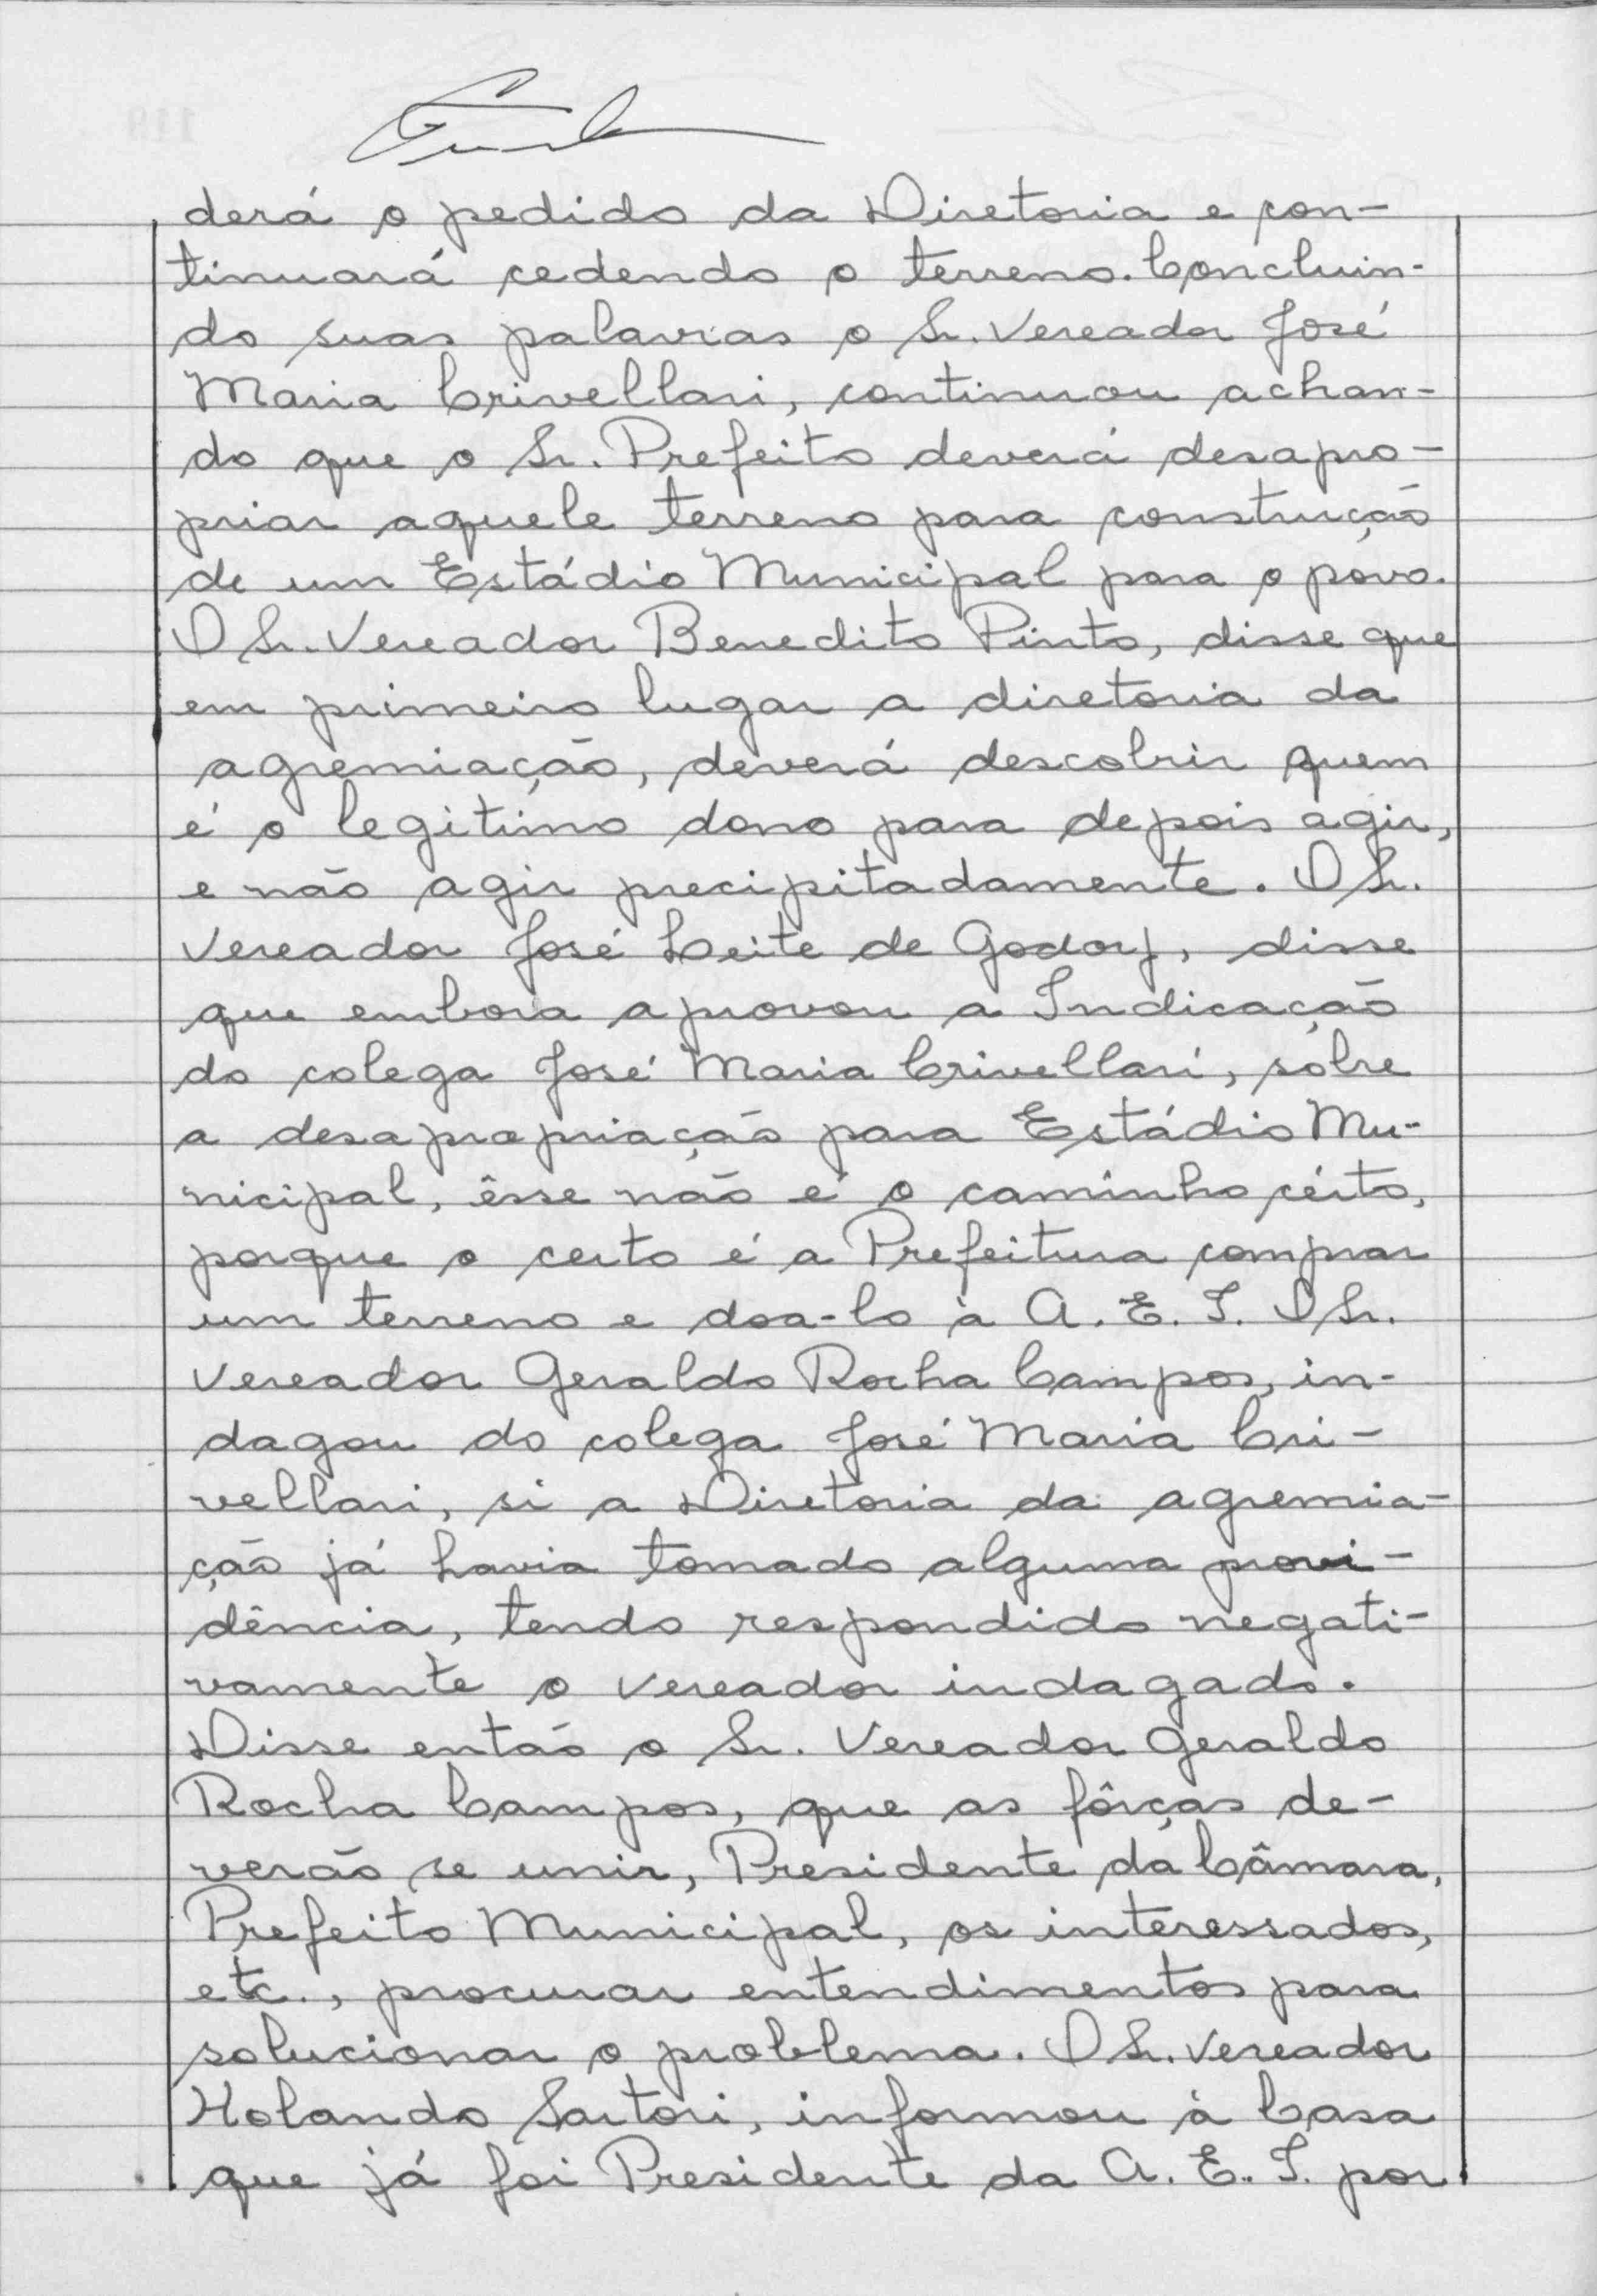 derá o pedido da Diretoria e con-
tinuará cedendo o terreno. Concluin-
do suas palavras o Sr. Vereador José
Maria Crivellari, continuou achan-
do que o Sr. Prefeito deverá desapro-
priar aquele terreno para construção
de um Estádio Municipal para o povo.
O Sr. Vereador Benedito Pinto, disse que
em primeiro lugar a diretoria da
agremiação, deverá descobrir quem
é o legítimo dono para depois agir,
e não agir precipitadamente. O Sr.
Vereador José Leite de Godoy, disse
que embora aprovou a Indicação
do colega José Maria Crivellari, sôbre
a desapropriação para Estádio Mu-
nicipal, êsse não é o caminho certo,
porque o certo é a Prefeitura comprar
um terreno e doa-lo à A. E. I. O Sr.
Vereador Geraldo Rocha Campos, in-
dagou do colega José Maria Cri-
vellari, si a Diretoria da agremia-
ção já havia tomado alguma provi-
dência, tendo respondido negati-
vamente o vereador indagado.
Disse então o Sr. Vereador Geraldo
Rocha Campos, que as fôrças de-
verão se unir, Presidente da Câmara,
Prefeito Municipal, os interessados,
etc., procurar entendimentos para
solucionar o problema. O Sr. Vereador
Holando Sartori, informou à Casa
que já foi Presidente da A. E. I. por